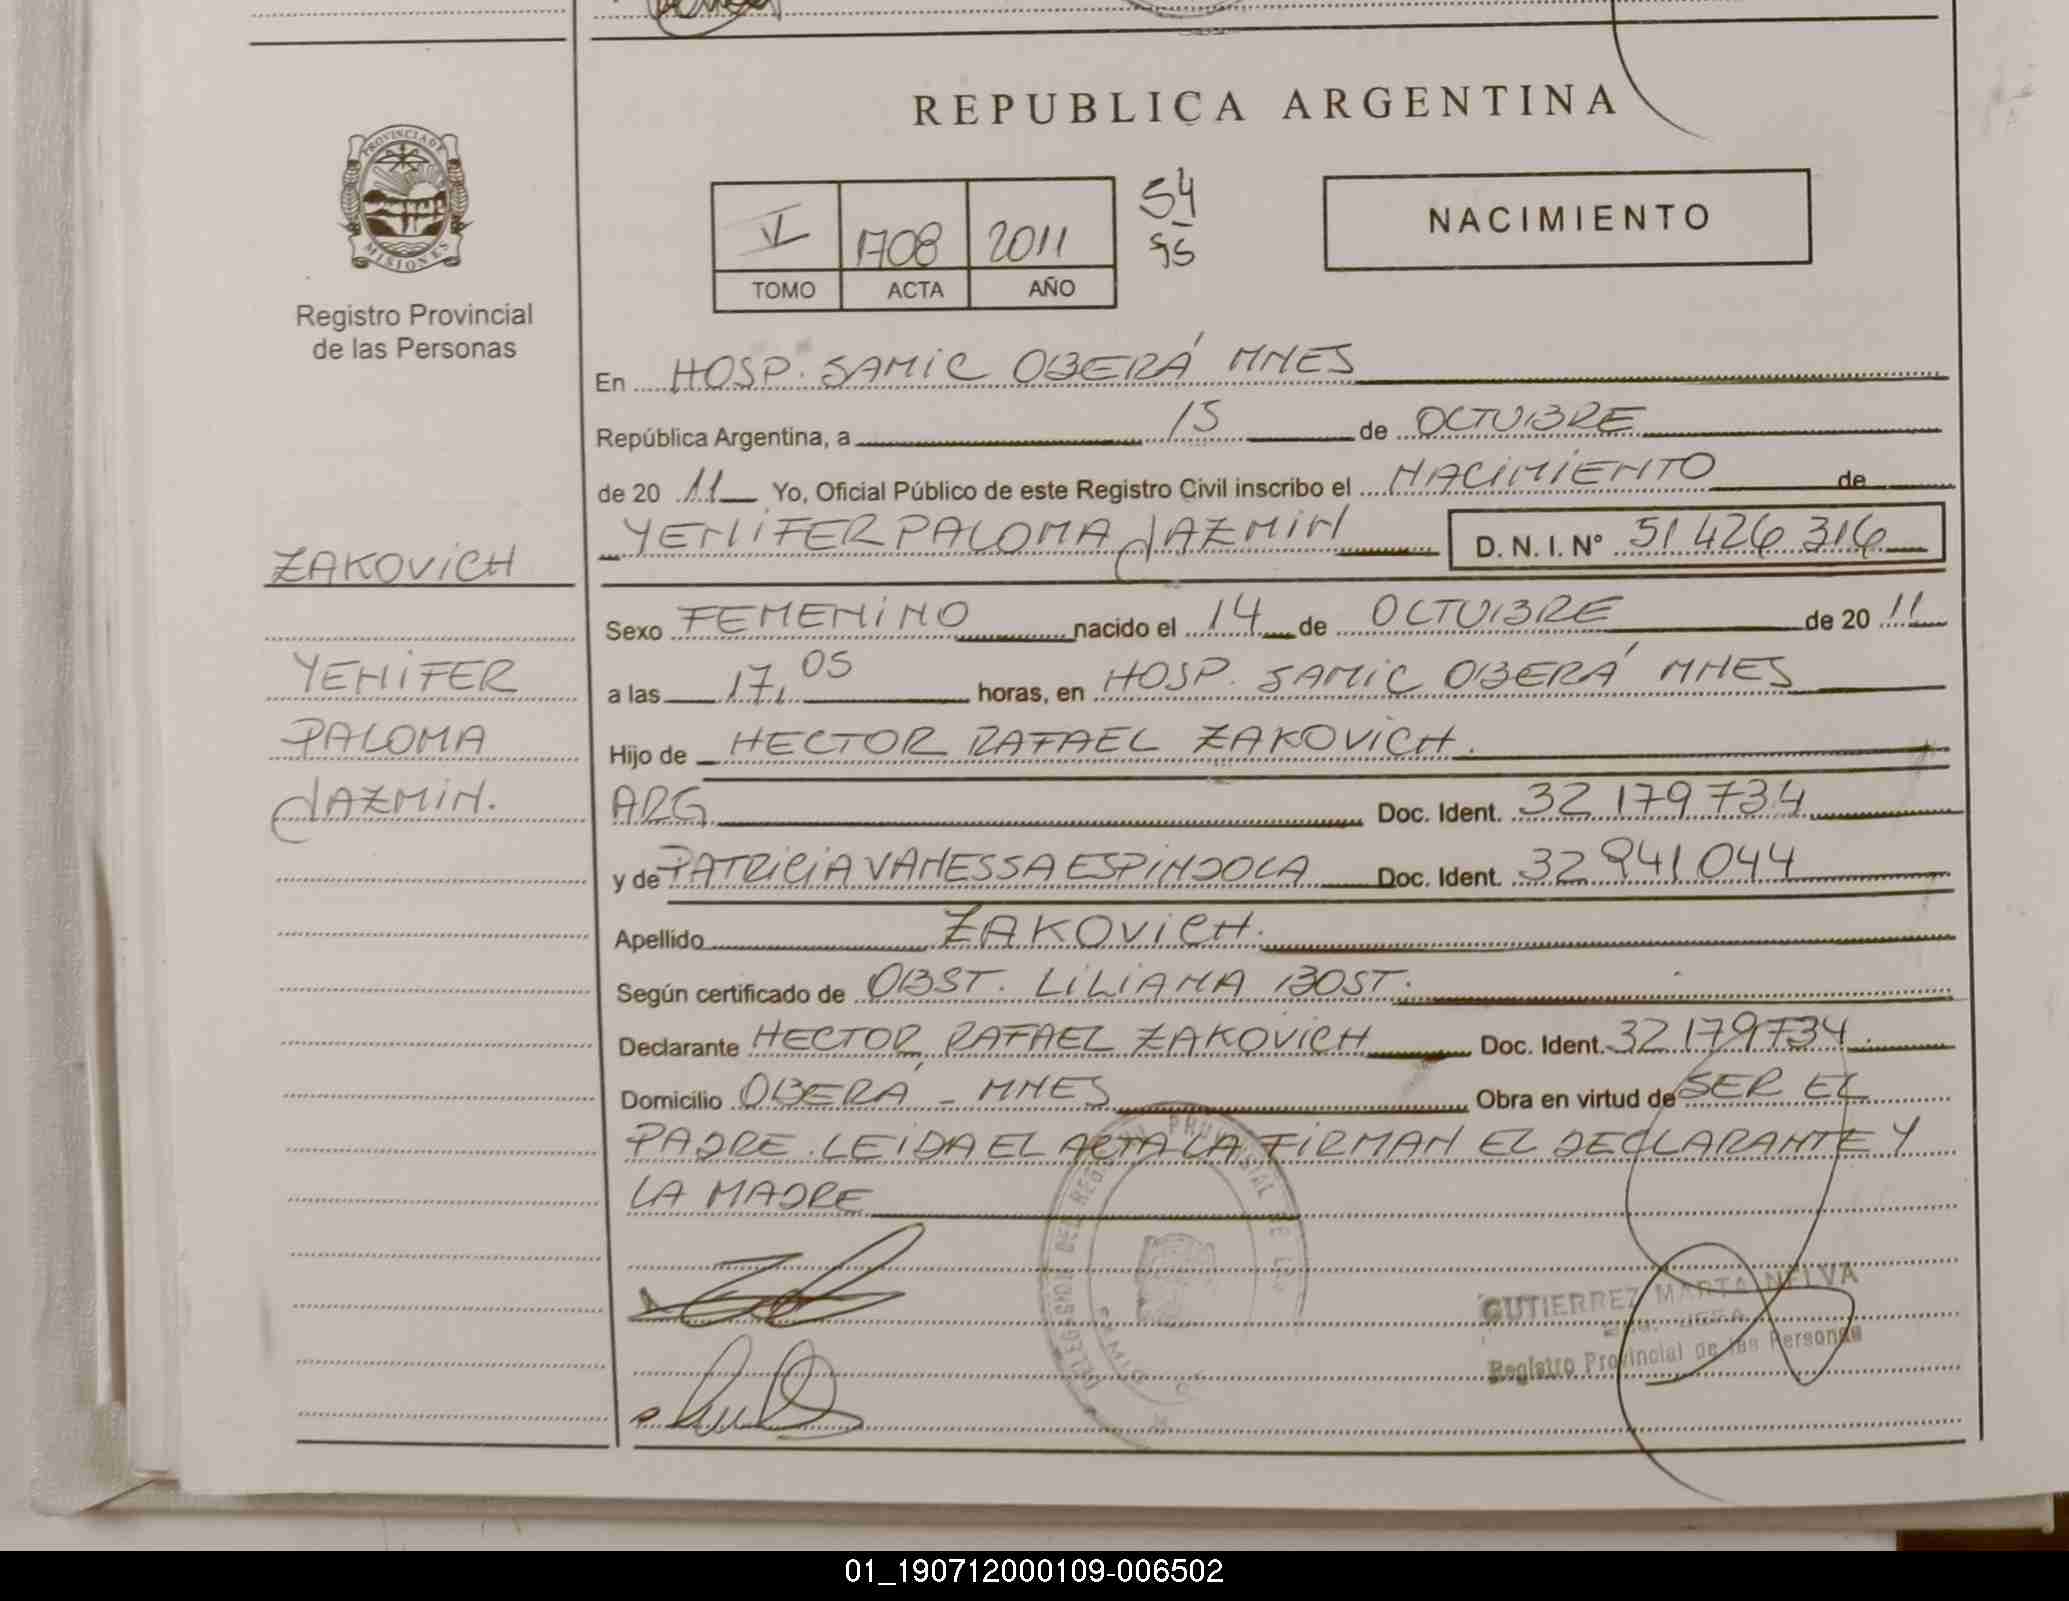 REPUBLICA ARGENTINA
PROVINCIA DE
MISIONES
Registro Provincial
de las Personas
V 1708 2011
TOMO ACTA AÑO
54
95
NACIMIENTO
En HOSP. SAMIC OBERÁ MNES
República Argentina, a 15 de OCTUBRE
de 20 11 Yo, Oficial Público de este Registro Civil inscribo el NACIMIENTO de
YENIFER PALOMA JAZMIN D. N. I. N° 51 426 316
ZAKOVICH
YENIFER
PALOMA
JAZMIN.
Sexo FEMENINO nacido el 14 de OCTUBRE de 20 11
a las 17,05 horas, en HOSP. SAMIC OBERÁ MNES
Hijo de HECTOR RAFAEL ZAKOVICH.
ARG Doc. Ident. 32 179 734
y de PATRICIA VANESSA ESPINDOLA Doc. Ident. 32 941 044
Apellido ZAKOVICH.
Según certificado de OBST. LILIANA BOST.
Declarante HECTOR RAFAEL ZAKOVICH Doc. Ident. 32 179 734
Domicilio OBERÁ - MNES Obra en virtud de SER EL
PADRE. LEIDA EL ACTA LA FIRMAN EL DECLARANTE Y
LA MADRE
GUTIERREZ MARTA NELVA
Registro Provincial de las Personas
01_190712000109-006502